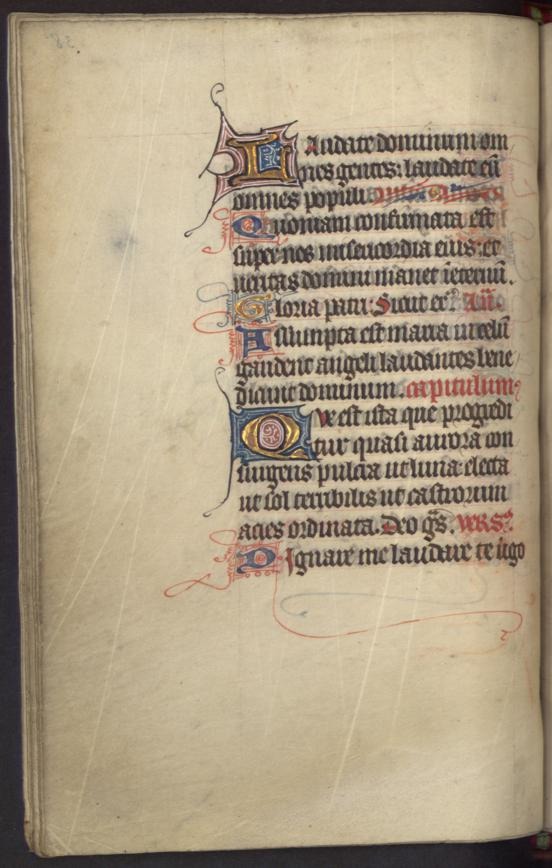 Laudate dominum om
nes gentes: laudate eū
omnes populi
Quoniam confirmata est
super nos misericordia eius: et
ueritas domini manet īeternū.
Gloria patri: Sicut er̄. Añ.
Assumpta est maria in celū
gaudent angeli laudantes bene
dicunt dominum. capitulum
Que est ista que progredi
tur quasi aurora con
surgens pulcra ut luna: electa
ut sol terribilis ut castrorum
acies ordinata. Deo gr̄s. vers9.
Dignare me laudare te uigo